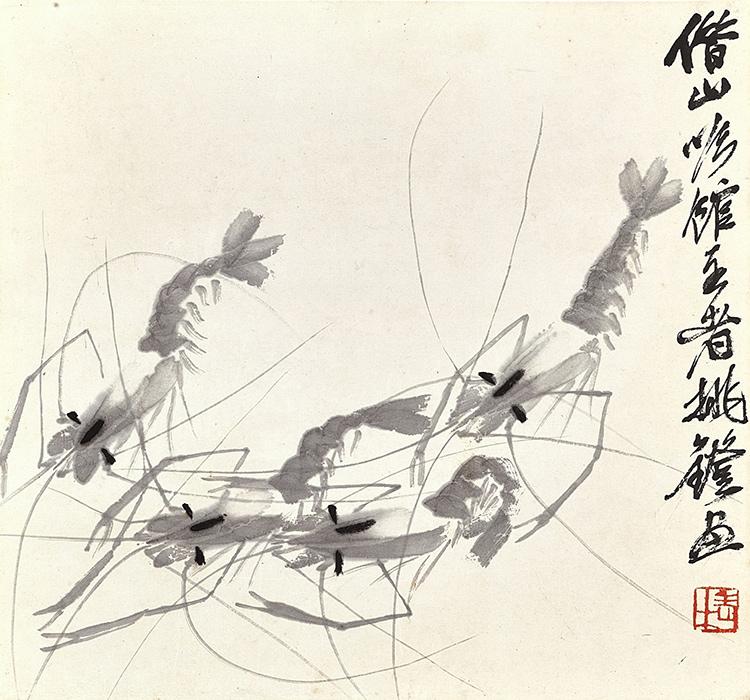 借山吟館主者挑鐙畫